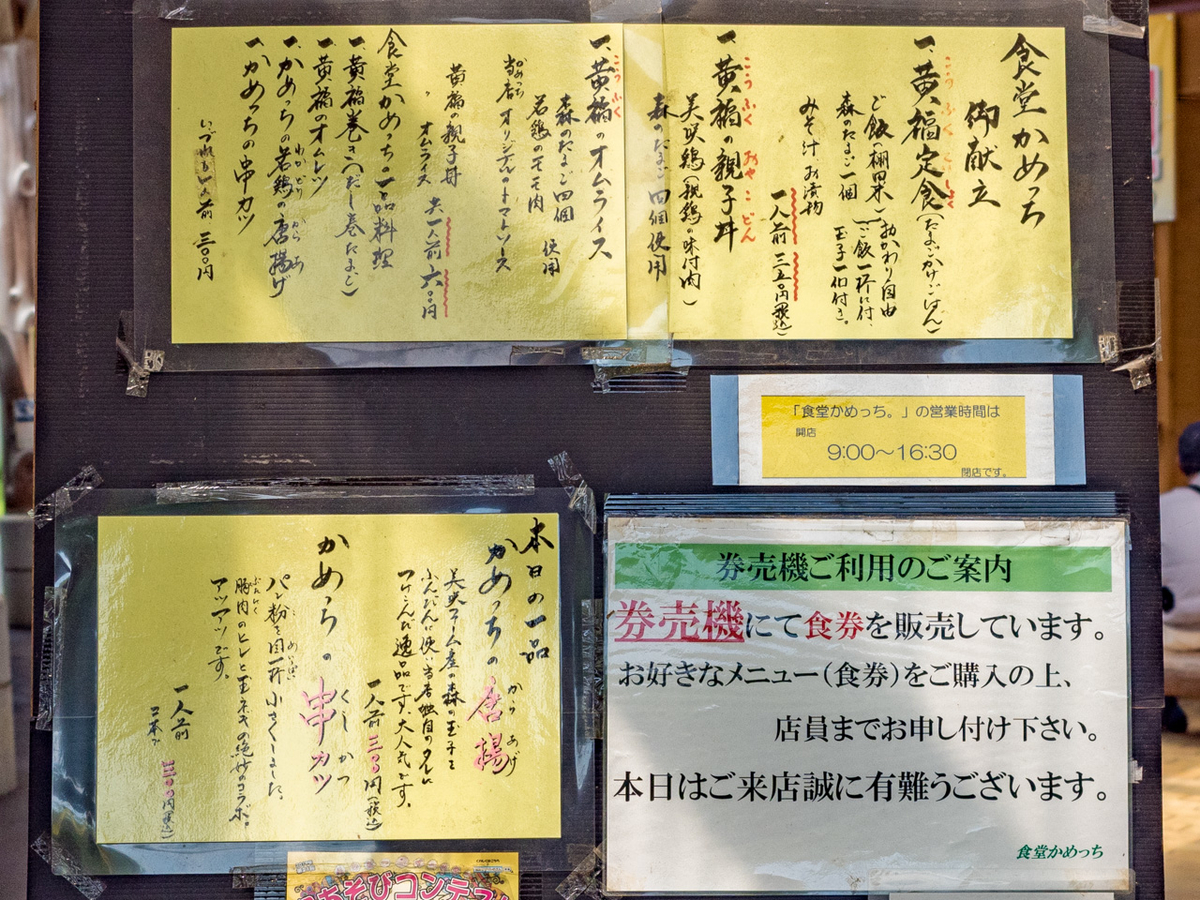 食堂かめっち
御献立
一、黄福定食(たまごかけごはん)
こうふくていしょく
ご飯(棚田米)おかわり自由
森のたまご一個(ご飯一杯に付、玉子一個付き。)
みそ汁、お漬物
一人前 三五〇円(税込)
一、黄福の親子丼
こうふく おやこどん
美咲鶏(親鶏の味付肉)
森のたまご四個使用
一、黄福のオムライス
こうふく
森のたまご四個使用
若鶏のモモ肉
当店オリジナルのトマトソース
かめっち
黄福の親子丼
〃 オムライス 共一人前 六〇〇円
食堂かめっちの一品料理
一、黄福巻き(だし巻たまご)
一、黄福のオムレツ
一、かめっちの若鶏の唐揚げ
わかどり からあ
一、かめっちの串カツ
いづれも一人前 三〇〇円
「食堂かめっち。」の営業時間は
開店
9:00～16:30
閉店です。
本日の一品
かめっちの唐揚
からあげ
美咲ファーム産の森の玉子を
ふんだんに使い当店独自のタレに
つけこんだ逸品です。大人気です。
一人前 三〇〇円(税込)
かめっちの串カツ
くしかつ
パン粉を目一杯小さくしました。
豚肉のヒレと玉ネギの絶妙のコラボ。
アツアツです。
一人前
二本で 三〇〇円(税込)
券売機ご利用のご案内
券売機にて食券を販売しています。
お好きなメニュー(食券)をご購入の上、
店員までお申し付け下さい。
本日はご来店誠に有難うございます。
食堂かめっち